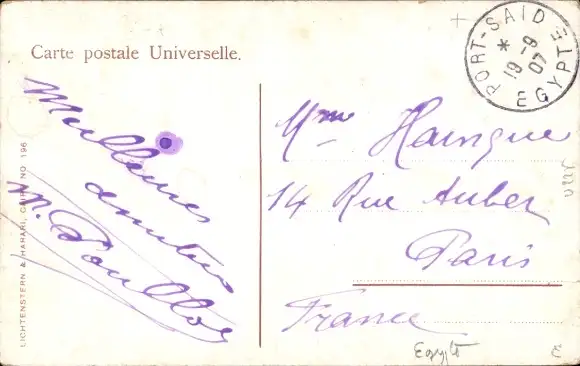 Carte postale Universelle.
PORT-SAID
*
19-9
07
EGYPTE
Meilleures
amitiés
Mme
14 Rue Auber
Paris
France
LICHTENSTERN & HARARI, CAIRO NO. 196
Egypt